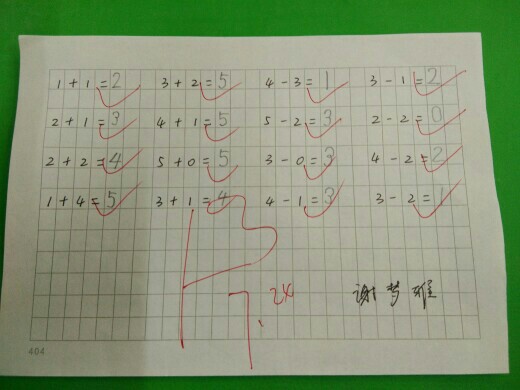 1 + 1 = 2 3 + 2 = 5 4 - 3 = 1 3 - 1 = 2
2 + 1 = 3 4 + 1 = 5 5 - 2 = 3 2 - 2 = 0
2 + 2 = 4 5 + 0 = 5 3 - 0 = 3 4 - 2 = 2
1 + 4 = 5 3 + 1 = 4 4 - 1 = 3 3 - 2 = 1
谢梦雅
404